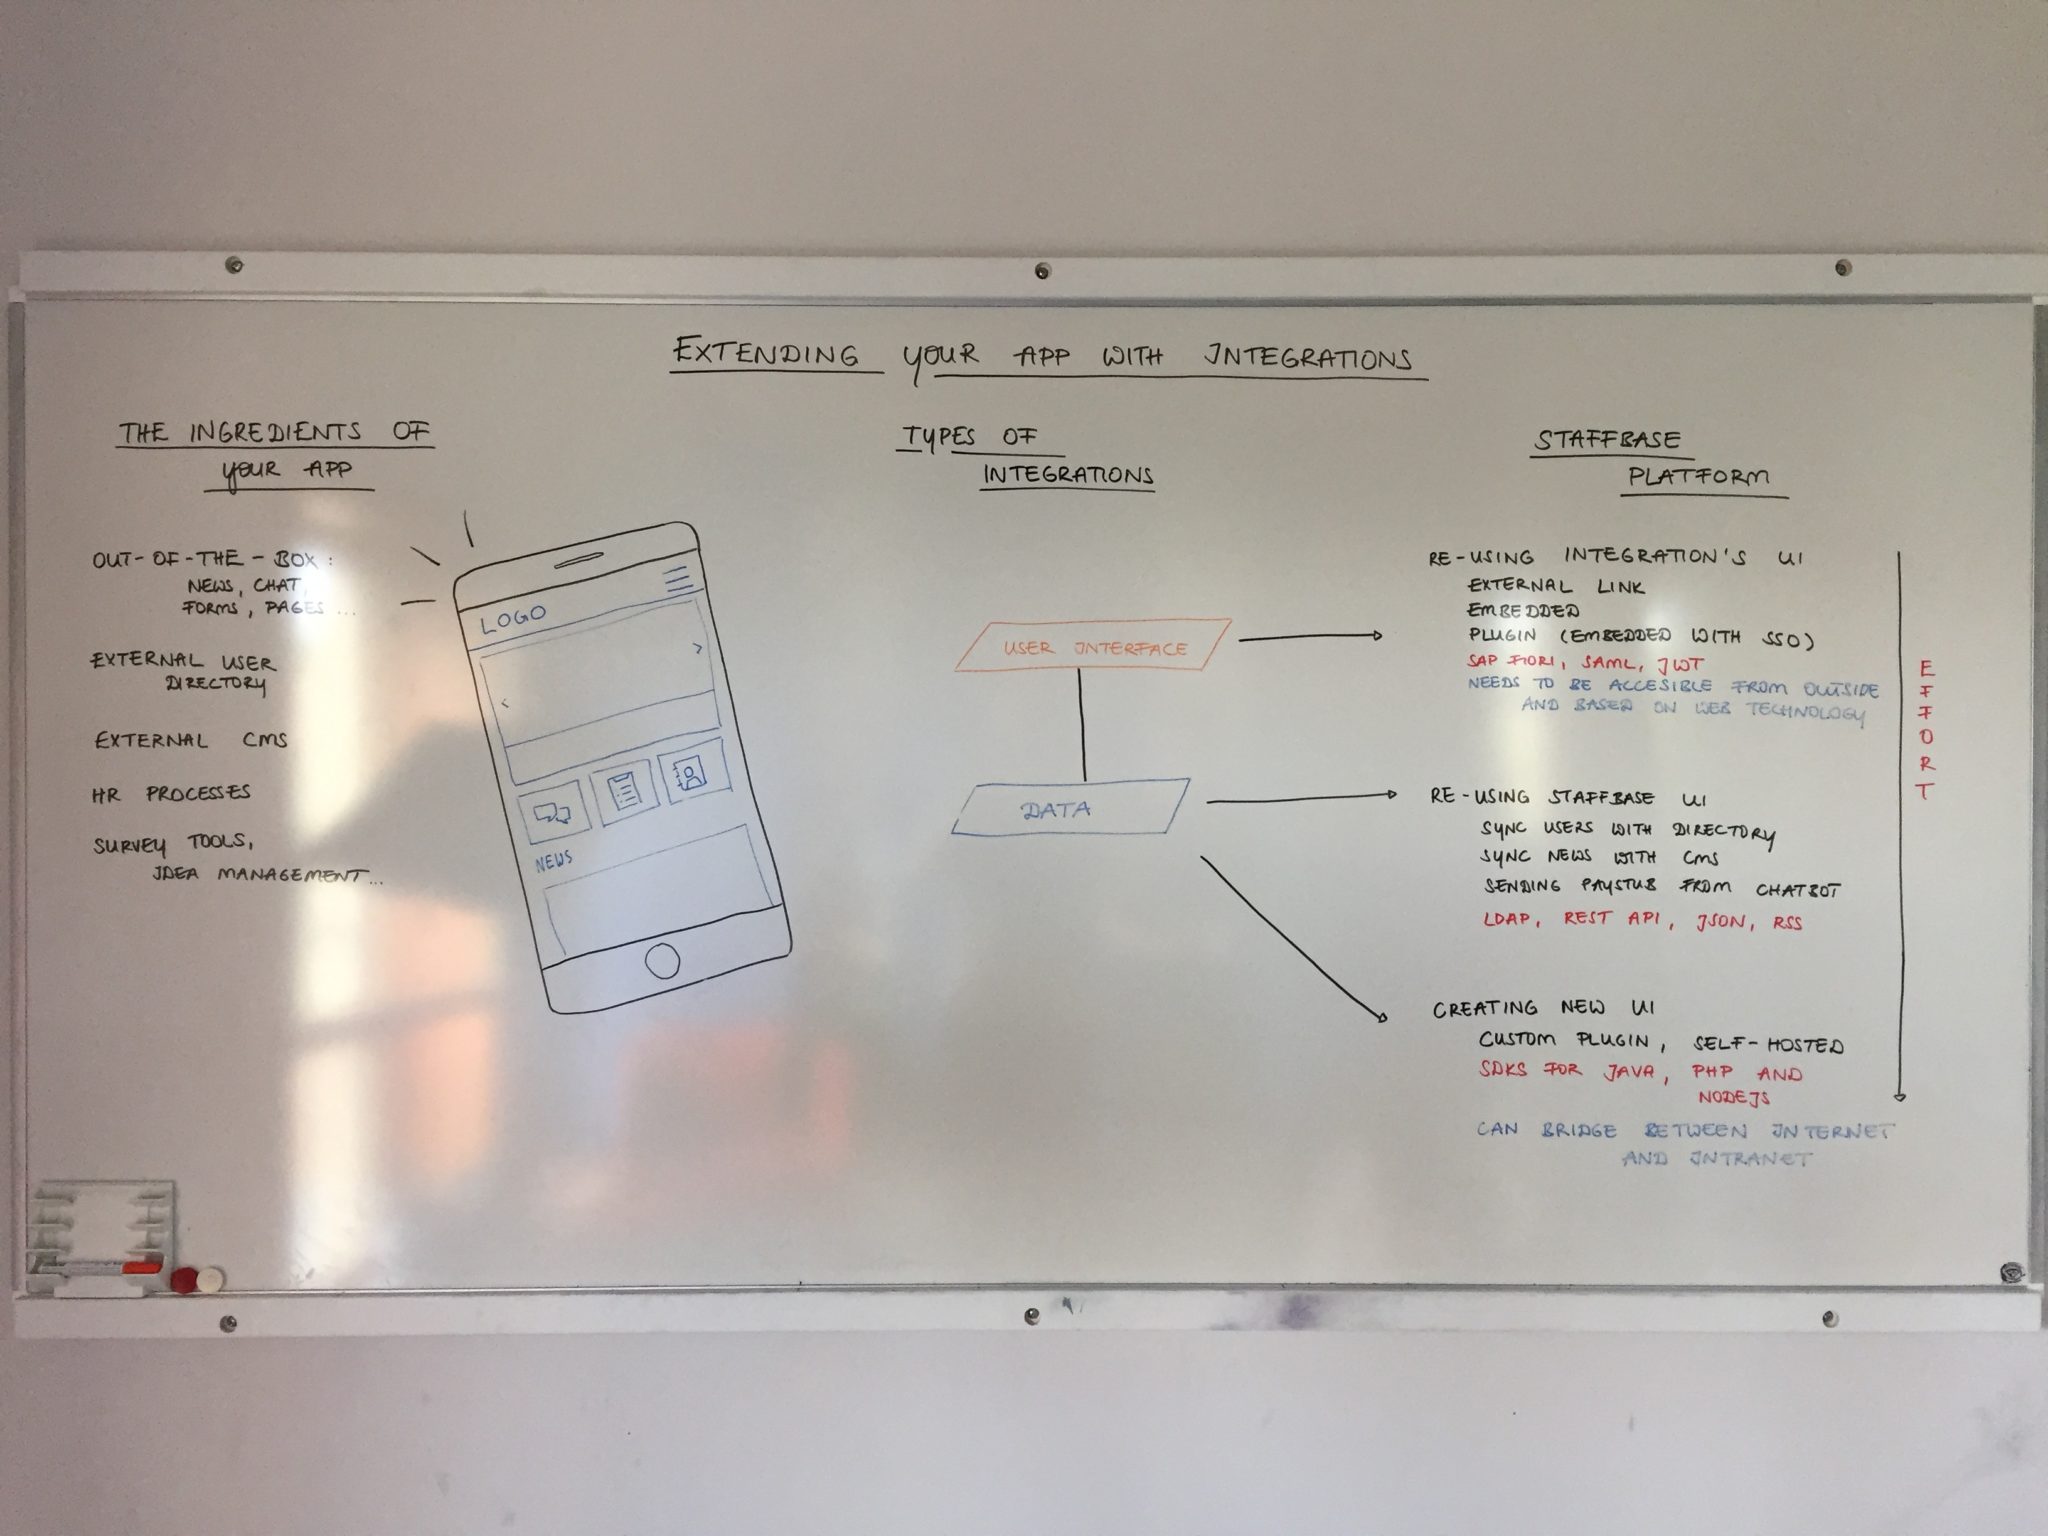 EXTENDING YOUR APP WITH INTEGRATIONS
THE INGREDIENTS OF
YOUR APP
OUT-OF-THE-BOX:
NEWS, CHAT,
FORMS, PAGES ...
EXTERNAL USER
DIRECTORY
EXTERNAL CMS
HR PROCESSES
SURVEY TOOLS,
IDEA MANAGEMENT...
LOGO
NEWS
TYPES OF
INTEGRATIONS
USER INTERFACE
DATA
STAFFBASE
PLATFORM
RE-USING INTEGRATION'S UI
EXTERNAL LINK
EMBEDDED
PLUGIN (EMBEDDED WITH SSO)
SAP FIORI, SAML, JWT
NEEDS TO BE ACCESIBLE FROM OUTSIDE
AND BASED ON WEB TECHNOLOGY
RE-USING STAFFBASE UI
SYNC USERS WITH DIRECTORY
SYNC NEWS WITH CMS
SENDING PAYSTUB FROM CHATBOT
LDAP, REST API, JSON, RSS
CREATING NEW UI
CUSTOM PLUGIN, SELF-HOSTED
SDKS FOR JAVA, PHP AND
NODEJS
CAN BRIDGE BETWEEN INTERNET
AND INTRANET
EFFORT